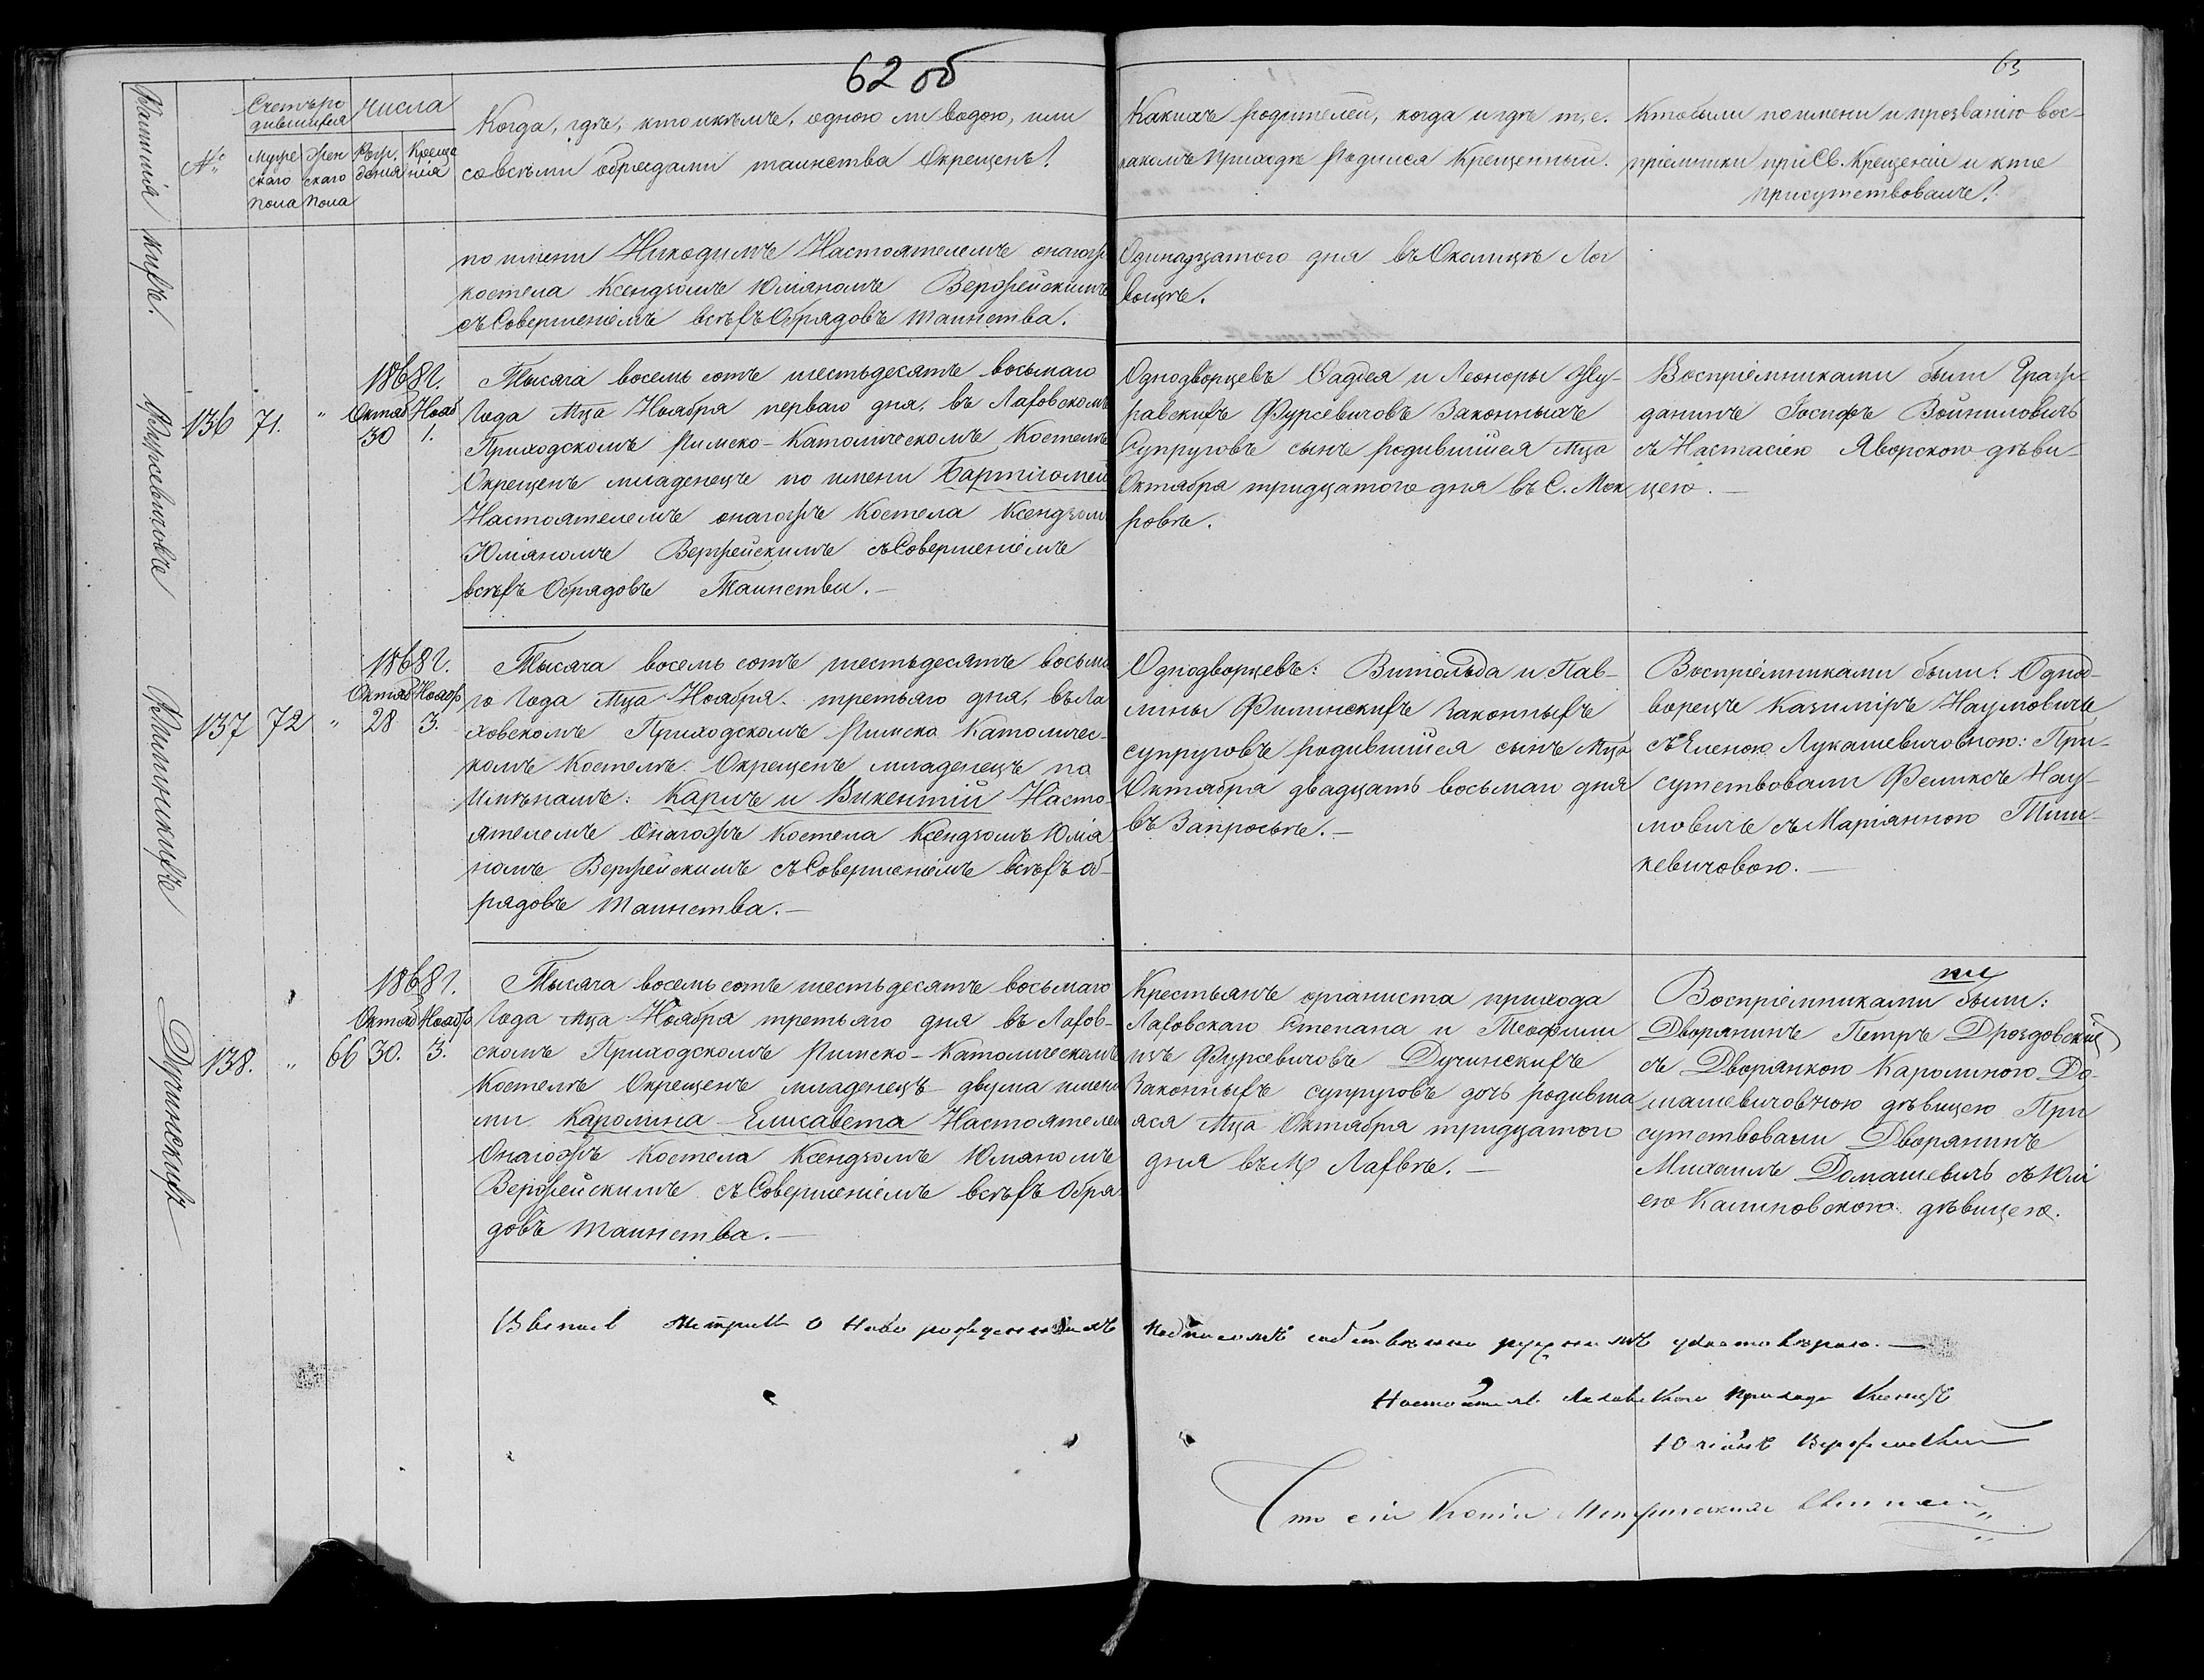 62 об
63
Фамилія кихъ.
№
Счетъ ро
дившихся
Муже
скаго
пола
Жен
скаго
пола
Числа
Рож.
денія
Креще
нія
Когда, гдѣ, кто и кѣмъ, одною ли водою, или
со всѣми обрядами таинства Окрещенъ?
Какихъ родителей, когда и гдѣ т, е.
какомъ приходѣ Родился Крещенный.
Кто были по имени и прозванію вос-
пріемники при Св. Крещеніи и кто
присутствовалъ?
по имени Никодимъ Настоятелемъ онагожъ
костела Ксендзомъ Юліаномъ Вержейскимъ
съ Совершеніемъ всѣхъ Обрядовъ таинства.
Одинадцатого дня въ Околицѣ Лог
вощѣ.
Фурсевичовъ
136
71.
"
1868 г.
Октяб Нояб
30 1.
Тысяча восемь сотъ шестьдесятъ восьмаго
Года Мца Ноября перваго дня, въ Лаховскомъ
Приходскомъ Римско-Католическомъ Костелѣ
Окрещенъ младенецъ по имени Бартломей
Настоятелемъ онагожъ Костела Ксендзом
Юліяномъ Вержейскимъ съ Совершеніемъ
всѣхъ Обрядовъ Таинства. —
Однодворцевъ Фадея и Леоноры Жу-
равскихъ Фурсевичовъ Законныхъ
Супруговъ сынъ родившійся Мца
Октября тридцатого дня въ С. Мок
ровѣ.
Воспріемниками были Граж-
данинъ Іосифъ Войниловичъ
съ Настасіею Яворскою дѣви-
цею. —
137
72
"
1868 г.
Октяб Нояб
28 3.
Тысяча восемь сотъ шестьдесятъ восьма
го Года Мца Ноября третьяго дня, въ Ла
ховскомъ Приходскомъ Римско Католичес-
комъ Костелѣ Окрещенъ младенецъ по
Имѣнамъ: Карлъ и Викентій Насто-
ятелемъ Онагожъ Костела Ксендзомъ Юлія
номъ Вержейскимъ съ Совершеніемъ всѣхъ об-
рядовъ таинства. —
Однодворцевъ: Витольда и Пав-
лины Филинскихъ Законныхъ
супруговъ родившійся сынъ Мца
Октября двадцать восьмаго дня
въ Запросьѣ. —
Воспріемниками были: Одно-
ворецъ Казиміръ Наумовичъ
съ Еленою Лукашевичовною: При-
сутствовали Феликсъ Нау-
мовичъ съ Маріянною Тиш-
кевичовою. —
Дучинскихъ
138.
"
66
1868 г.
Октяб Нояб
30. 3.
Тысяча восемь сотъ шестьдесятъ восьмаго
Года мца Ноября третьяго дня въ Лахов-
скомъ Приходскомъ Римско-Католическомъ
Костелѣ Окрещенъ младенецъ двума имена
ми Каролина-Елисавета Настоятеле
Онагожъ Костела Ксендзомъ Юліаномъ
Вержейскимъ съ Совершеніемъ всѣхъ Обря
довъ таинства. —
Крестьянъ органиста прихода
Лаховскаго Степана и Теофили
изъ Фурсевичовъ Дучинскихъ
Законныхъ супруговъ дочь родивша
яся Мца Октября тридцатого
дня въ М Лахвѣ. —
Воспріемниками были:
Дворянинъ Петръ Дроздовскій
съ Дворянкою Каролиною До-
машевичовною дѣвицею При
сутствовали Дворянинъ
Михаилъ Домашевичъ съ Юлі
ею Калиновскою дѣвицею.
метрик о ново рожденныхъ подписомъ собственно ручнымъ удостовѣряю. —
Настоятель Лаховскаго Прихода Ксендзъ
Юліянъ Вержейскій
Что сіи Копіи Метрическія